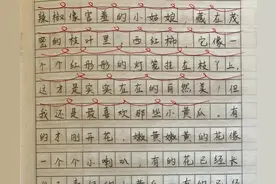 辣椒像害羞的小姑娘,藏在茂
密的枝叶里,西红柿,它像一
个个红彤彤的灯笼挂在枝丫上,
这才是实实在在的自然美,但
我还是最喜欢那些小黄瓜。有
的才刚开花,嫩黄嫩黄的花像
一个个小喇叭,有的花已经长